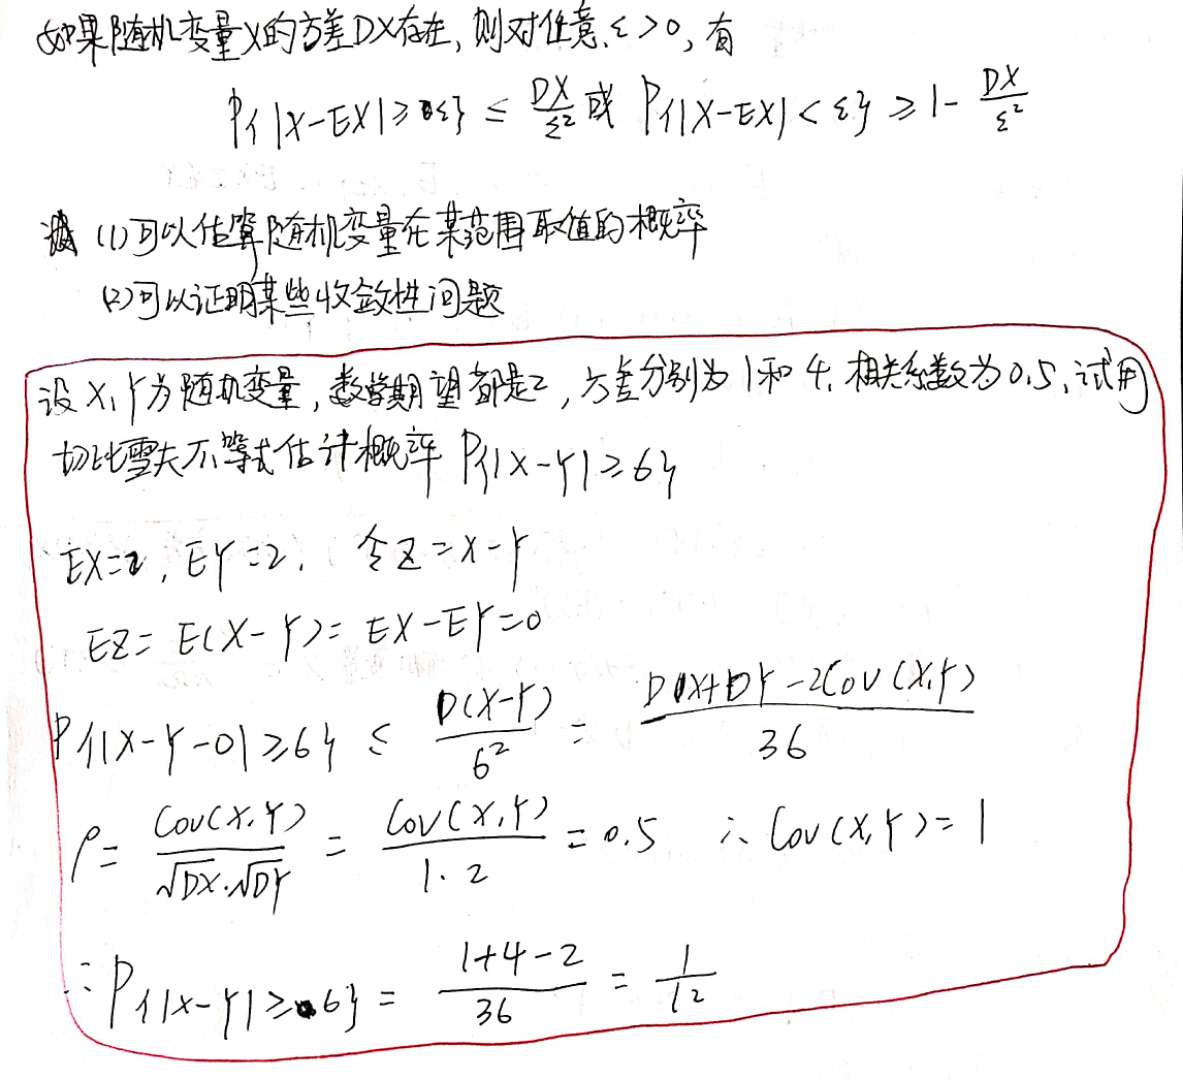 如果随机变量X的方差DX存在, 则对任意ε>0, 有
P{|X-EX|≥ε} ≤ DX/ε² 或 P{|X-EX|<ε} ≥ 1- DX/ε²
(1)可以估算随机变量在某范围取值的概率
(2)可以证明某些收敛性问题
设X,Y为随机变量, 数学期望都是2, 方差分别为1和4. 相关系数为0.5, 试用
切比雪夫不等式估计概率 P{|X-Y|≥6}
EX=2, EY=2. 令Z=X-Y
EZ= E(X-Y)= EX-EY=0
P{|X-Y-0|≥6} ≤ D(X-Y)/6² = DX+DY-2Cov(X,Y)/36
ρ= Cov(X,Y)/√DX·√DY = Cov(X,Y)/1·2 =0.5 ∴ Cov(X,Y)=1
∴ P{|X-Y|≥6} = 1+4-2/36 = 1/12